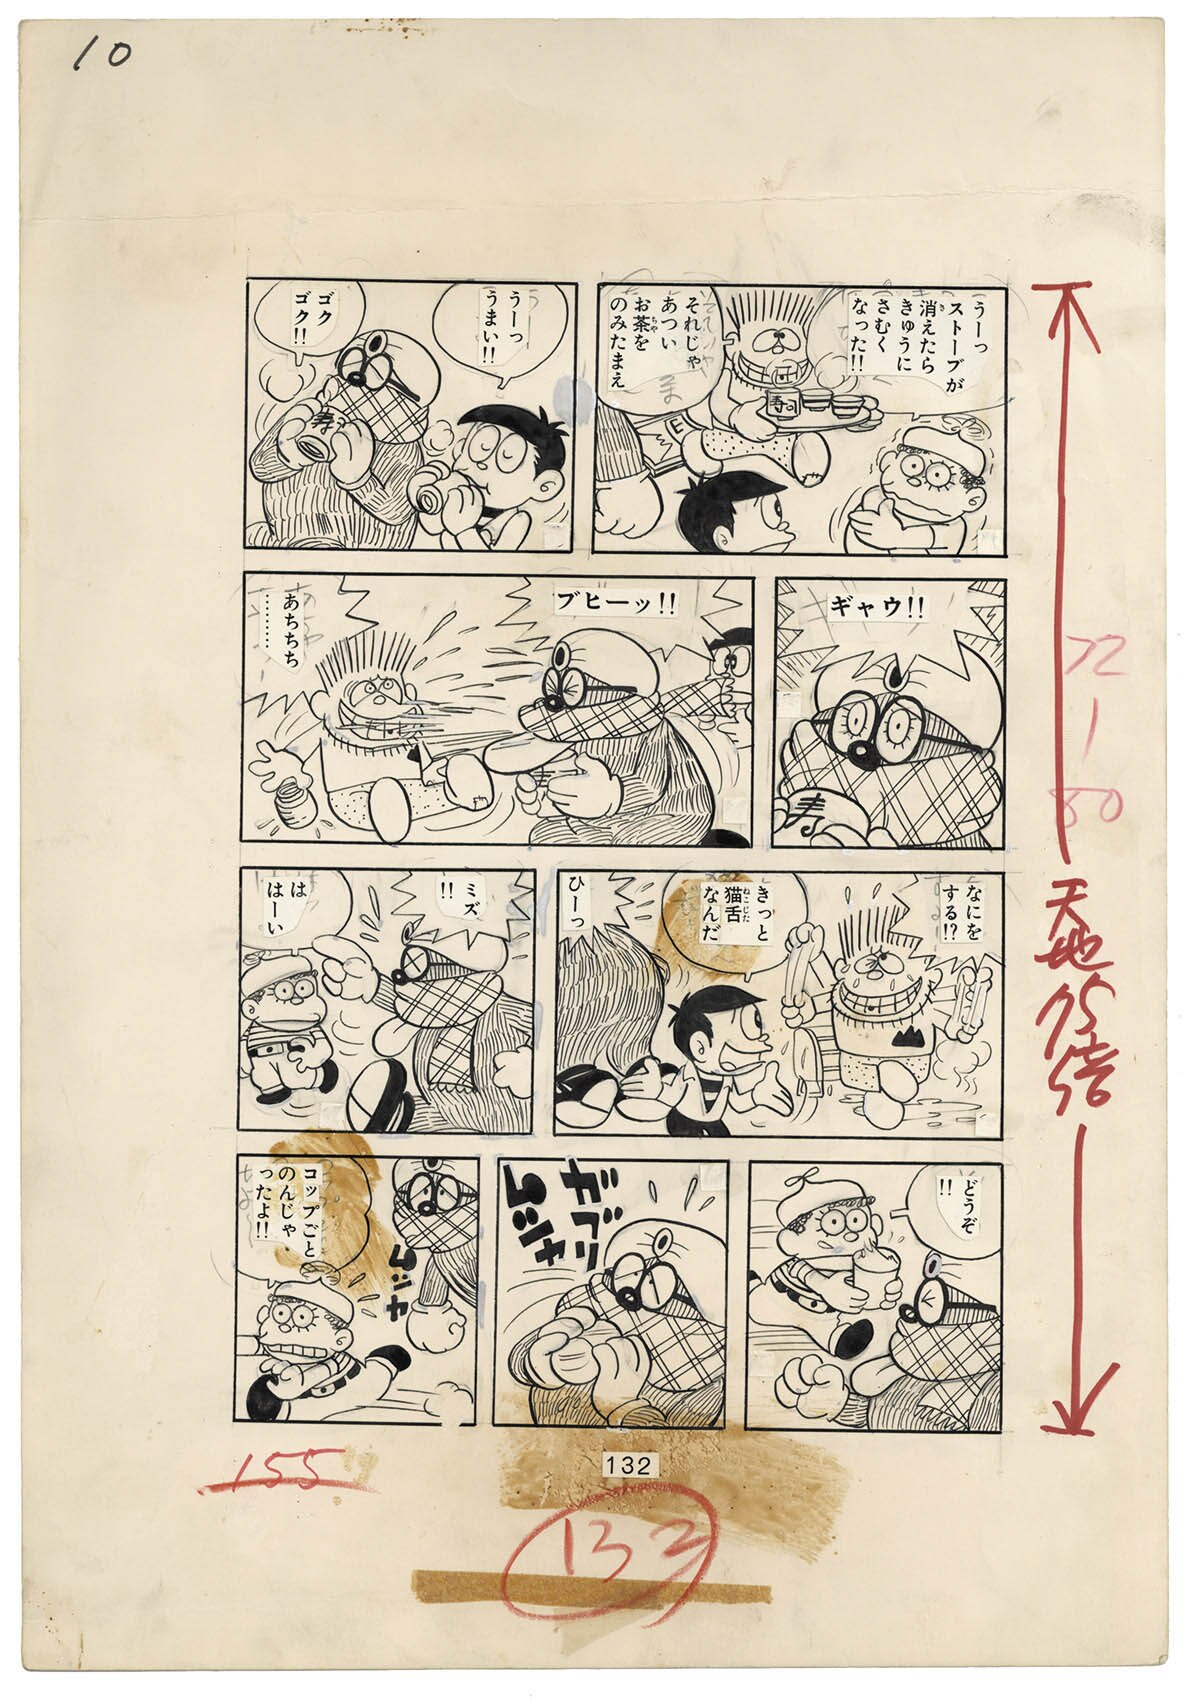 10
うーっ
ストーブが
消えたら
きゅうに
さむく
なった!!
それじゃ
あつい
お茶を
のみたまえ
寿司
E
うーっ
うまい!!
ゴク
ゴク!!
寿
ギャウ!!
寿
ブヒーッ!!
あちちち
………
なにを
する!?
きっと
猫舌
なんだ
ひーっ
ミズ
!!
は
はーい
どうぞ
!!
ガブリ
ゴシャ
ゴシャ
コップごと
のんじゃ
ったよ!!
72
1
80
天地
155
132
132